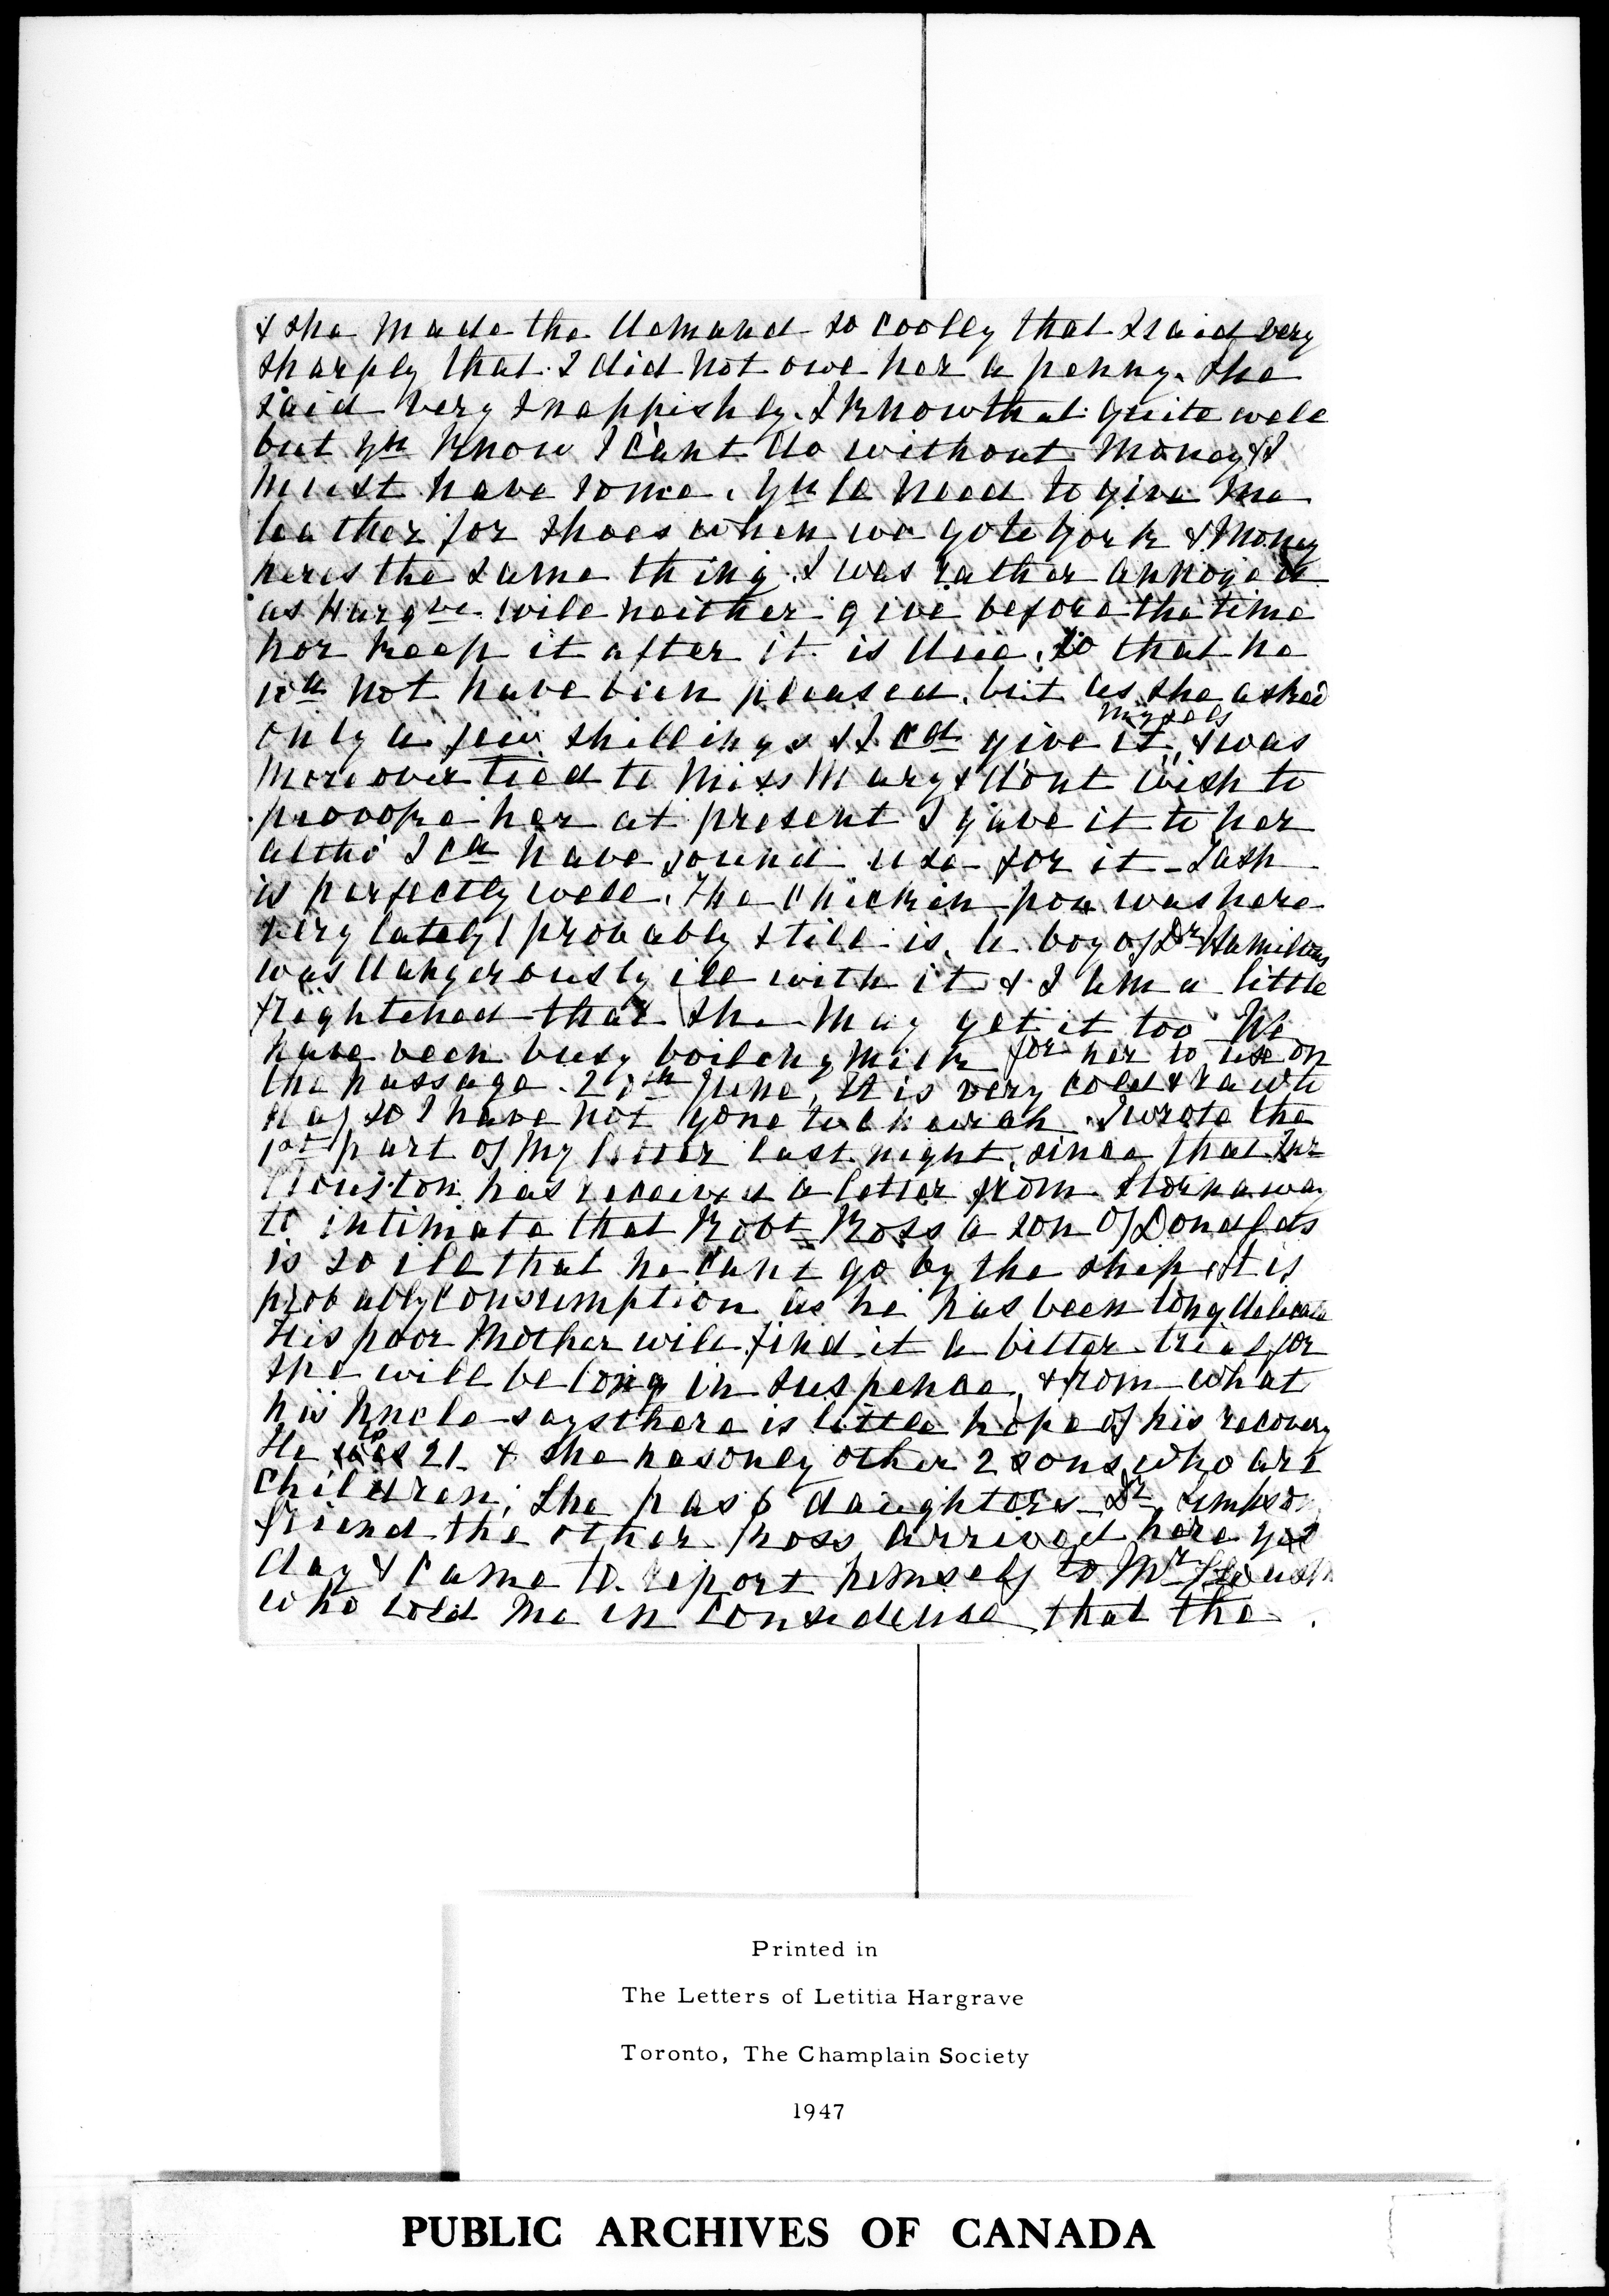 & she made the demand so cooly that I said very
sharply that I did not owe her a penny. She
said very snappishly. I know that quite well
but yu know I cant do without money & I
must have some. Yull need to give me
leather for shoes when we go to York & money
here is the same thing. I was rather annoyed
as Hargve will neither give before the time
nor keep it after it is due, so that he
wd not have been pleased. but as she asked
only a few shillings & I cd give it myself, & was
moreover tied to Miss Mary & dont wish to
provoke her at present I gave it to her
altho I cd have found use for it - Tash
is perfectly well. The chicken pox was here
very lately & probably still is, a boy of Dr Hamiltons
was dangerously ill with it & I am a little
frightened that she may get it too We
have been busy boiling milk for her to use on
the passage. June, It is very cold & raw
day so I have not gone to church. I wrote the
1st part of my letter last night, since that Mr
Clouston has received a letter from Stornaway
to intimate that Robt Ross a son of Donalds
is so ill that he cant go by the ship. It is
probably consumption as he has been long delicate
His poor Mother will find it a bitter trial for
she will be long in suspence, & from what
his Uncle says there is little hope of his recovery
He is 21 & she has only other 2 sons who are
children, She has 6 daughters Dr
friend the other Ross arrived here yes
day & came to report himself to Mr Clouston
who told me in confidence that the
Printed in
The Letters of Letitia Hargrave
Toronto, The Champlain Society
1947
PUBLIC ARCHIVES OF CANADA